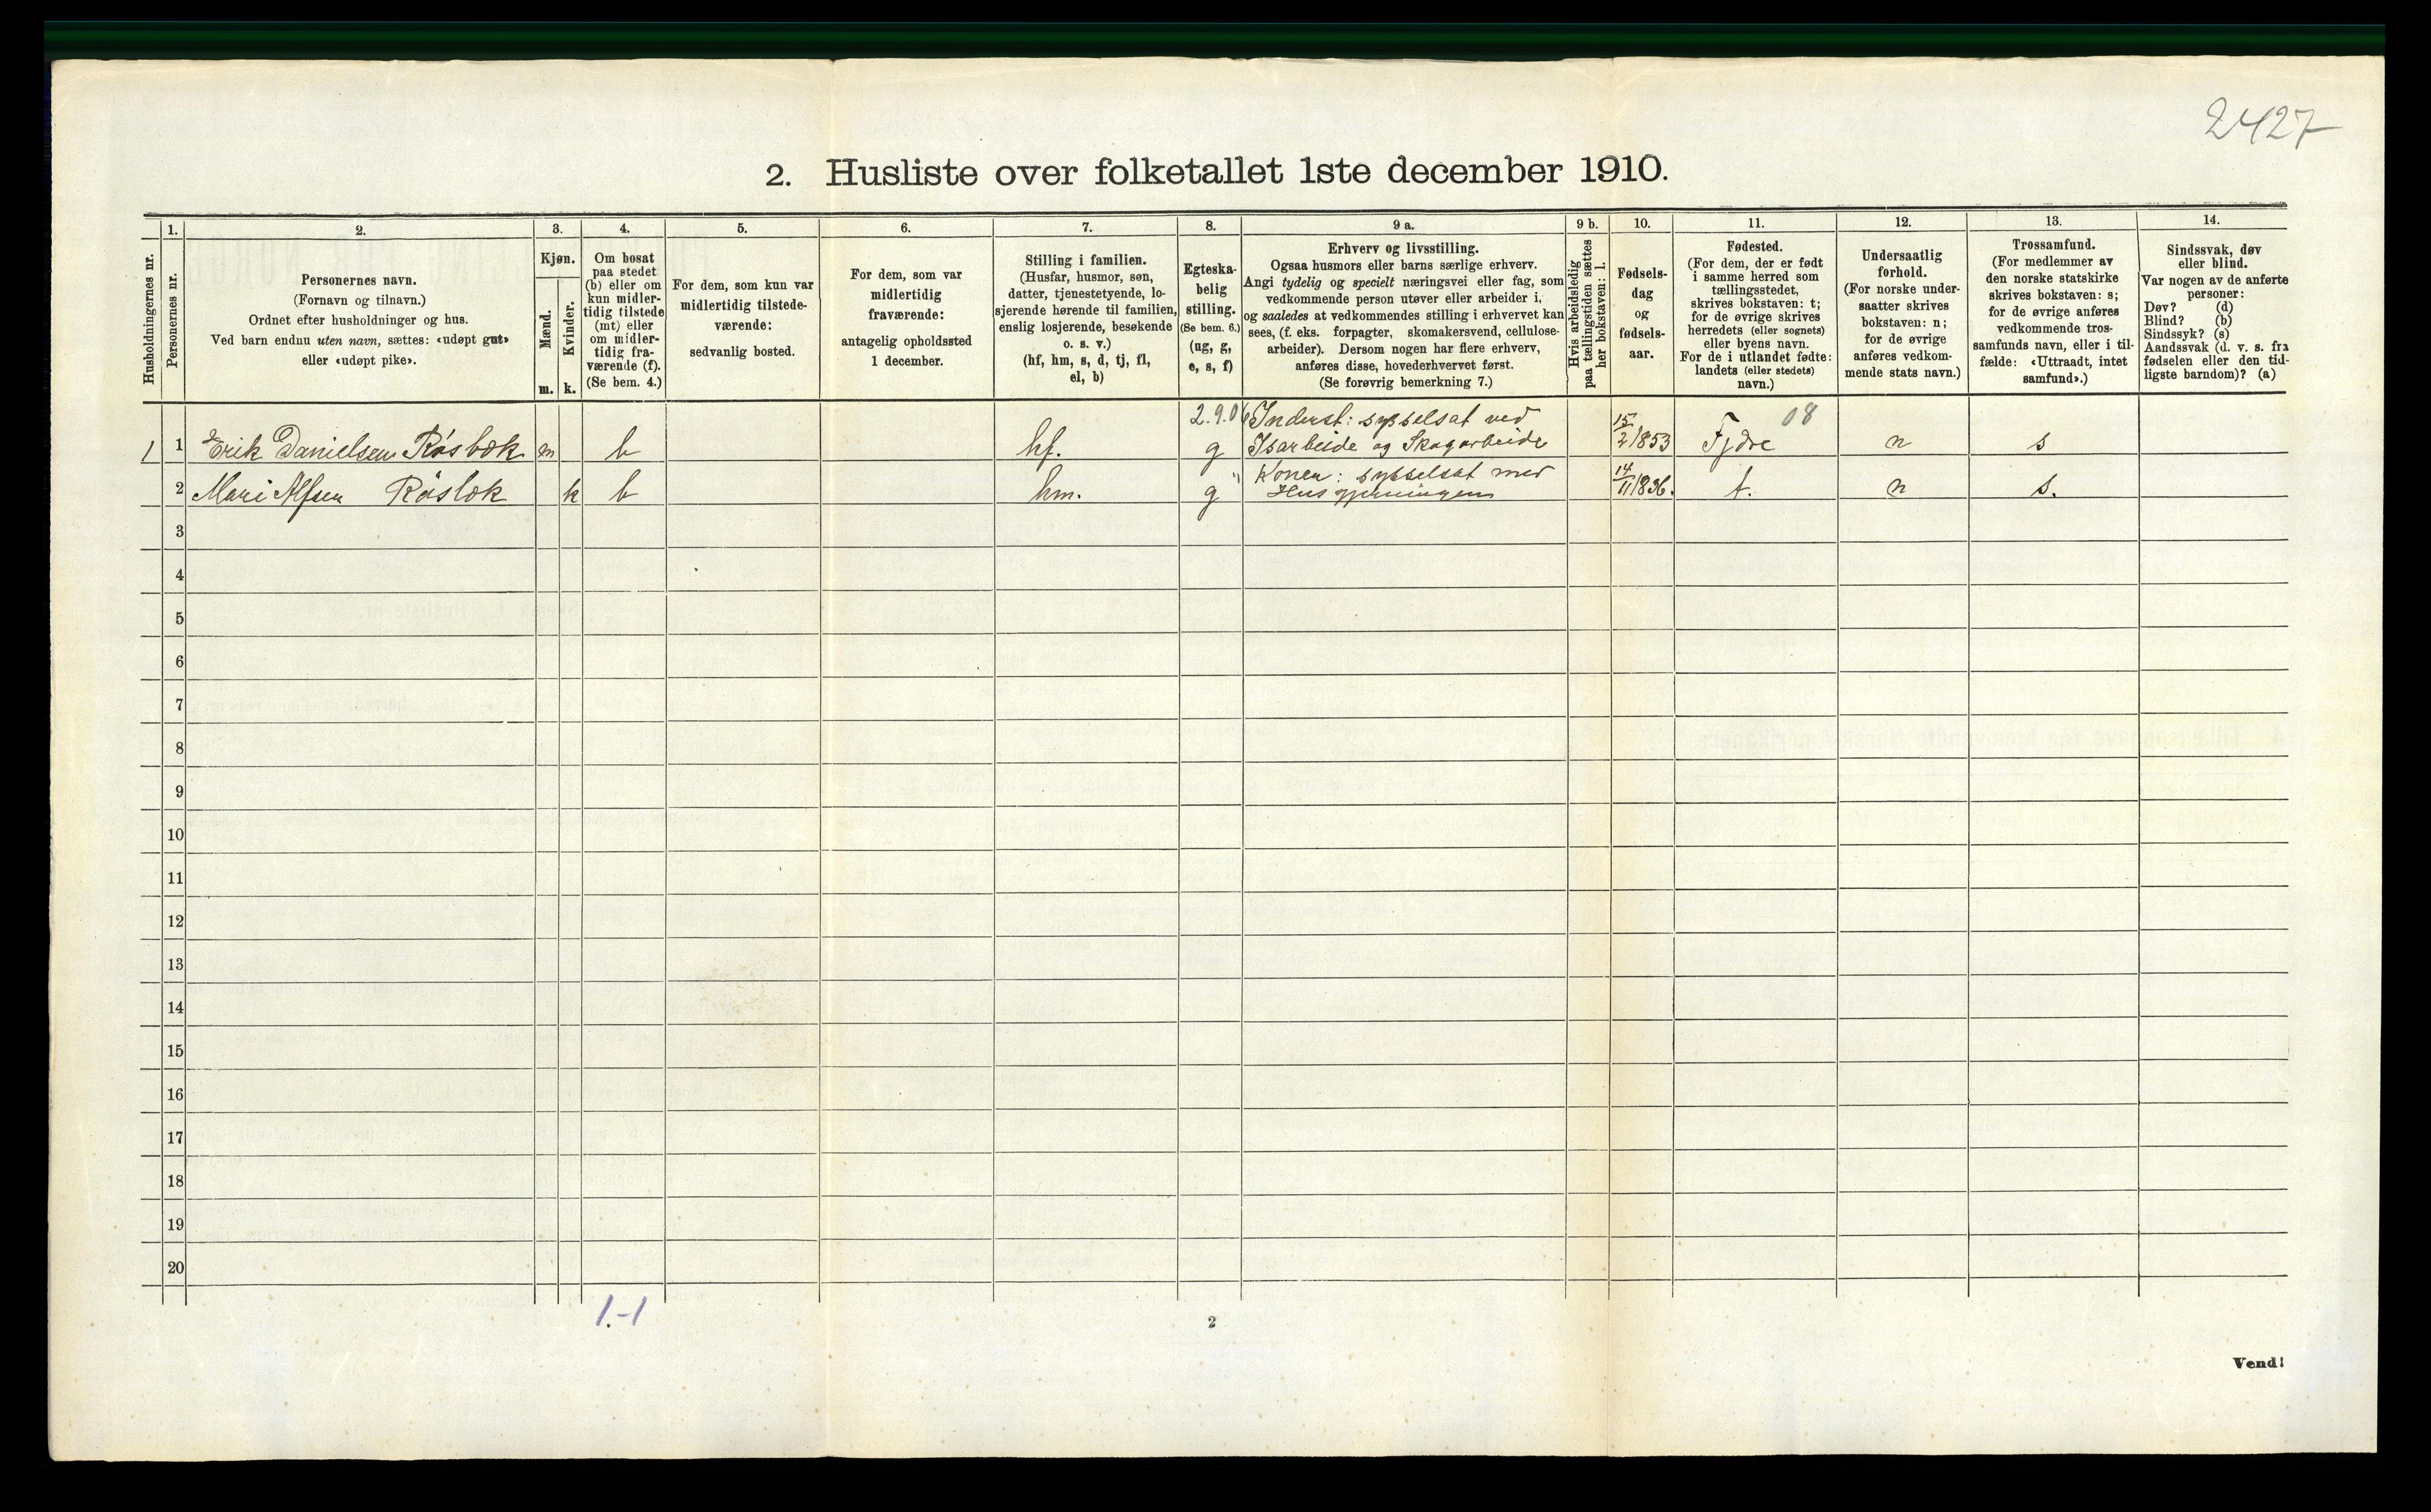 2427
2. Husliste over folketallet 1ste december 1910.
Husholdningernes nr.
1.
Personernes nr.
2.
Personernes navn.
(Fornavn og tilnavn.)
Ordnet efter husholdninger og hus.
Ved barn endnu uten navn, sættes: «udøpt gut»
eller «udøpt pike».
3.
Kjøn.
Mænd.
m.
Kvinder.
k.
4.
Om bosat
paa stedet
(b) eller om
kun midler-
tidig tilstede
(mt) eller
om midler-
tidig fra-
værende (f).
(Se bem. 4.)
5.
For dem, som kun var
midlertidig tilstede-
værende:
sedvanlig bosted.
6.
For dem, som var
midlertidig
fraværende:
antagelig opholdssted
1 december.
7.
Stilling i familien.
(Husfar, husmor, søn,
datter, tjenestetyende, lo-
sjerende hørende til familien,
enslig losjerende, besøkende
o. s. v.)
(hf, hm, s, d, tj, fl,
el, b)
8.
Egteska-
belig
stilling.
(Se bem. 6.)
(ug, g,
e, s, f)
9 a.
Erhverv og livsstilling.
Ogsaa husmors eller barns særlige erhverv.
Angi tydelig og specielt næringsvei eller fag, som
vedkommende person utøver eller arbeider i,
og saaledes at vedkommendes stilling i erhvervet kan
sees, (f. eks. forpagter, skomakersvend, cellulose-
arbeider). Dersom nogen har flere erhverv,
anføres disse, hovederhvervet først.
(Se forøvrig bemerkning 7.)
9 b.
Hvis arbeidsledig
paa tællingstiden sættes
her bokstaven: l.
10.
Fødsels-
dag
og
fødsels-
aar.
11.
Fødested.
(For dem, der er født
i samme herred som
tællingsstedet,
skrives bokstaven: t;
for de øvrige skrives
herredets (eller sognets)
eller byens navn.
For de i utlandet fødte:
landets (eller stedets)
navn.)
12.
Undersaatlig
forhold.
(For norske under-
saatter skrives
bokstaven: n;
for de øvrige
anføres vedkom-
mende stats navn.)
13.
Trossamfund.
(For medlemmer av
den norske statskirke
skrives bokstaven: s;
for de øvrige anføres
vedkommende tros-
samfunds navn, eller i til-
fælde: «Uttraadt, intet
samfund».)
14.
Sindssvak, døv
eller blind.
Var nogen av de anførte
personer:
Døv? (d)
Blind? (b)
Sindssyk? (s)
Aandssvak (d. v. s. fra
fødselen eller den tid-
ligste barndom)? (a)
2.9.06 Inderst: sysselsat ved 08
1 1 Erik Danielsen Råsbøk m b hf. g Isarbeide og Skogarbeide 15/2 1853 n s
" Konen: sysselsat med
2 Mari Alfsen Råsbøk k b hm. g Husgjerningen 14/11 1836. t. n s.
3
4
5
6
7
8
9
10
11
12
13
14
15
16
17
18
19
20
1.-1
2
Vend!